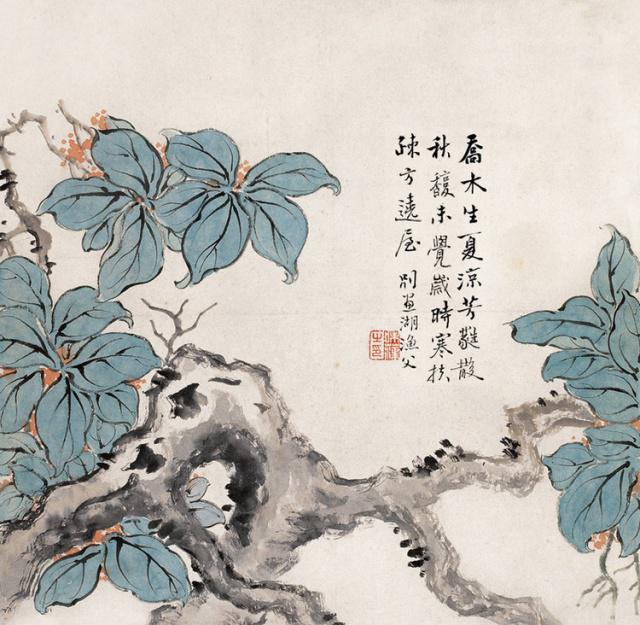 喬木生夏涼芳蕤散
秋馥未覺歲時寒扶
疎方遶屋 湖漁父